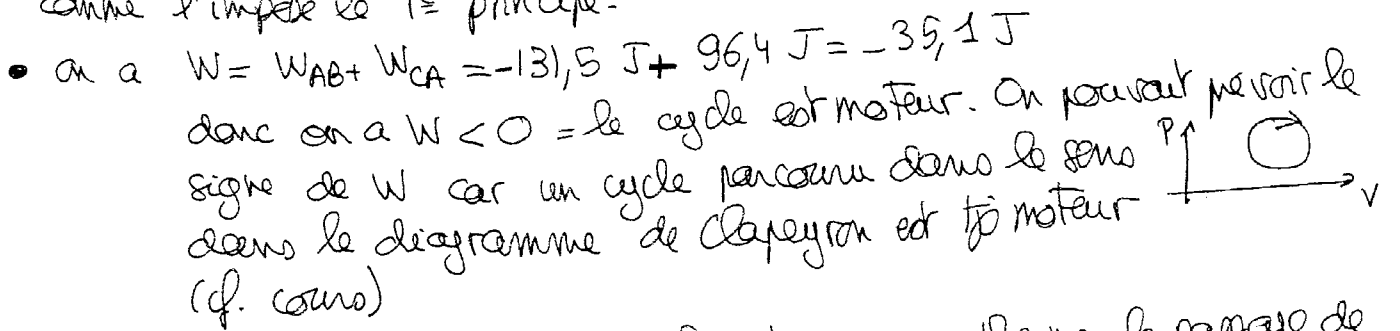 comme l'impose le 1er principe.
• on a W = WAB + WCA = -131,5 J + 96,4 J = -35,1 J
donc on a W < 0 = le cycle est moteur. On pouvait prévoir le
signe de W car un cycle parcouru dans le sens P V
dans le diagramme de Clapeyron est tjs moteur
(cf. cours)
le passage de